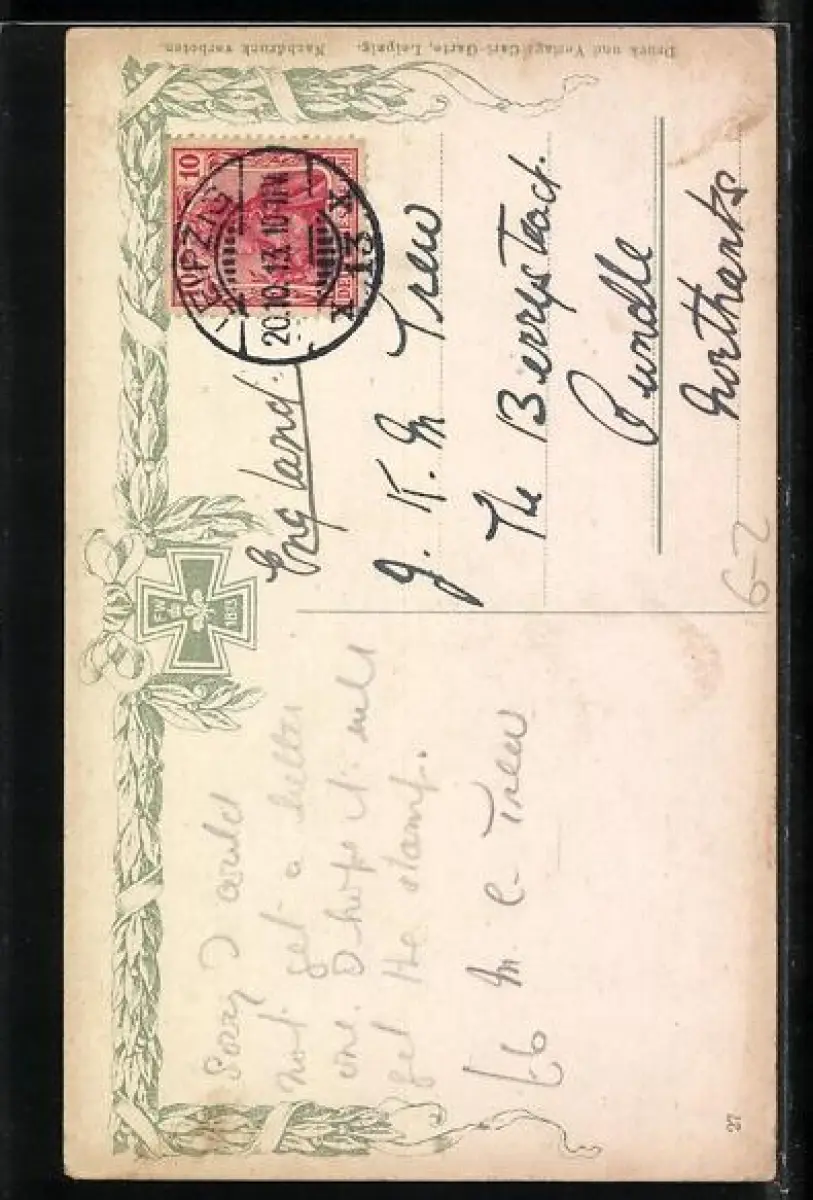 Druck und Verlag: Carl Garte, Leipzig. Nachdruck verboten.
10
LEIPZIG
20.10.13. 10-11N
X 13 X
FW
1813
England.
J. K. M Trew
The Berrystead.
Oundle
Northants
Sorry I could
not get a better
one. I hope it will
get the stamp.
M C Trew
6-2
27